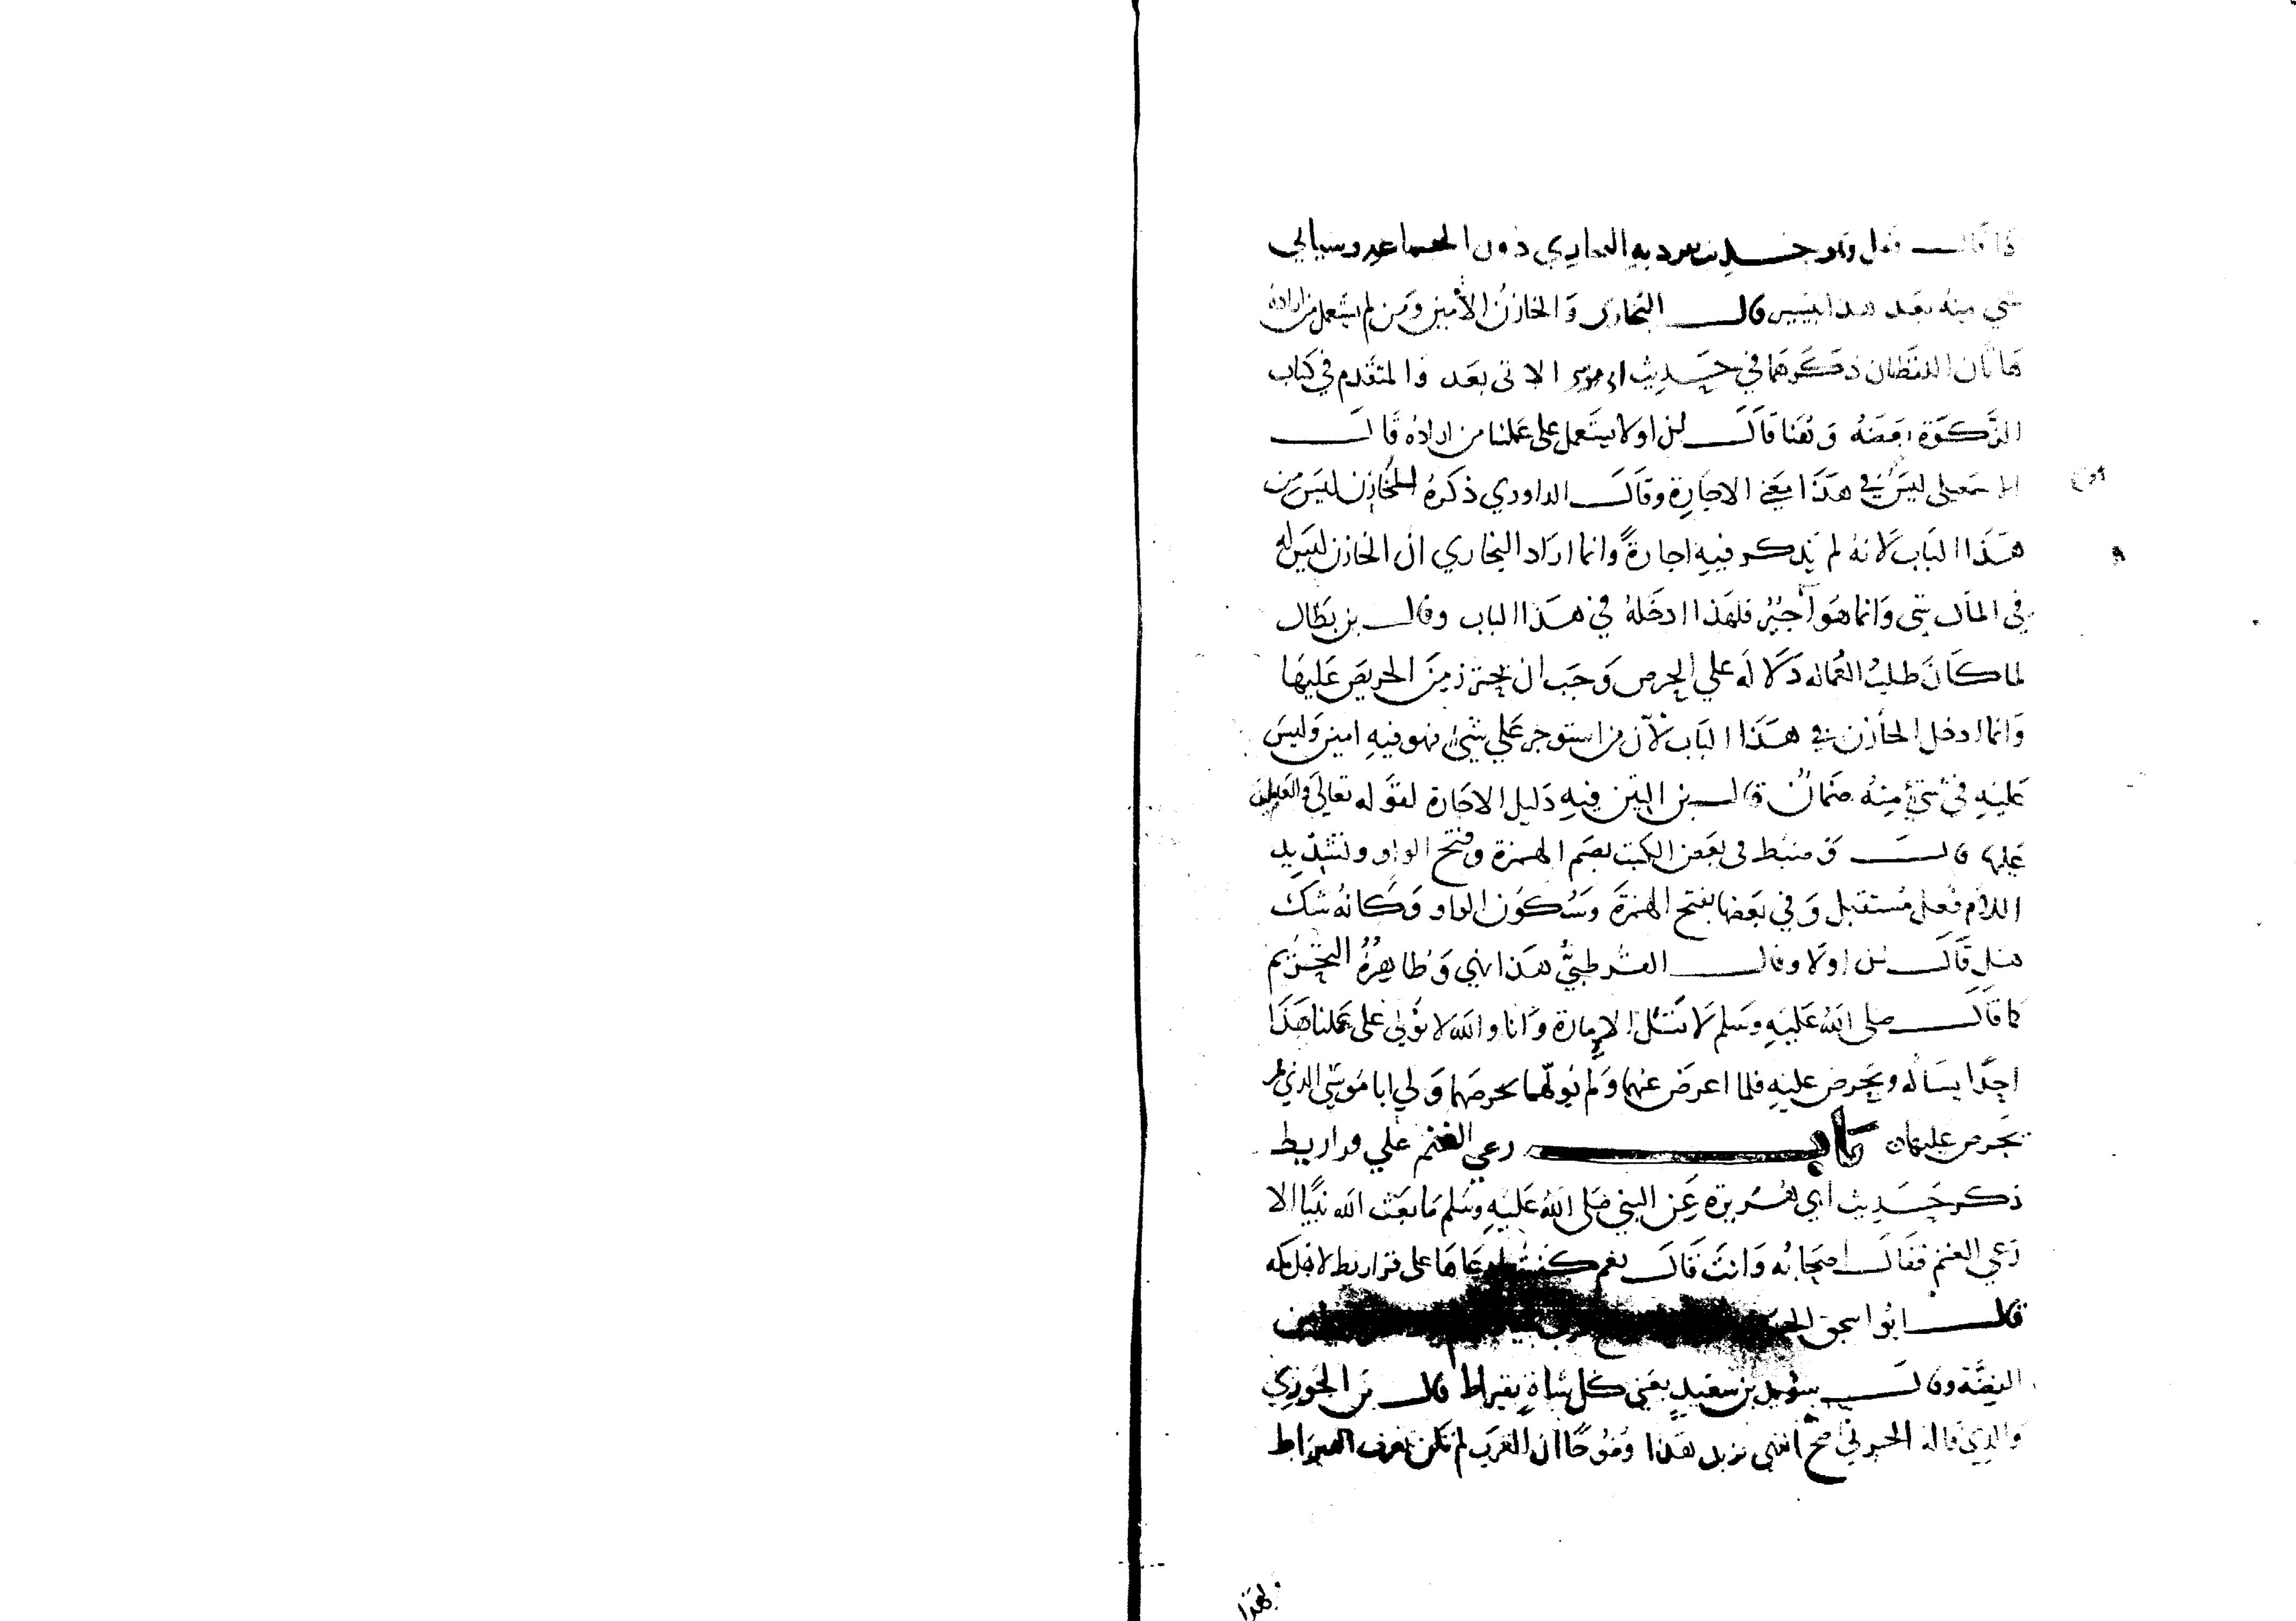 كذا قال قيل وهو حديث تفرد به البخاري دون الجماعة وسيأتي
شي منه بعد هذا بيسير قال البخاري والخازن الأمين ومن لم يستعمل من اراده
هاتان اللفظتان ذكرهما في حديث ابي موسى الاتي بعد والمتقدم في كتاب
الزكوة بعضه وفينا قال لن اولا يستعمل على عملنا من اراده قال
الاسمعيلي ليس في هذا معنى الاجارة وقال الداودي ذكره الخازن ليس من
هذا الباب لانه لم يذكر فيه اجارة وانما اراد البخاري ان الخازن ليس له
في المال شي وانما هو أجير فلهذا ادخله في هذا الباب وقال بن بطال
لما كان طلب العماله دلالة علي الحرص وجب ان يحترز من الحريص عليها
وانما ادخل الخازن في هذا الباب لأن من استوجر علي شيء فهو فيه امين وليس
عليه في شيء منه ضمان قال بن التين فيه دليل الاجارة لقوله تعالي والعاملين
عليها قال وضبط في بعض الكتب بضم الهمزة وفتح الواو وتشديد
اللام فعل مستقبل وفي بعضها بفتح الهمزة وسكون الواو وكانه شك
هل قال لن اولا وقال القرطبي هذا نهي وظاهره التحريم
كما قال صلى الله عليه وسلم لا تسئل الإمارة وانا والله لا نولي على عملنا هذا
احدا يسأله ويحرص عليه فلما اعرض عنهما ولم يولهما لحرصهما ولي ابا موسى الذي لم
يحرص عليها باب رعي الغنم علي قراريط
ذكر حديث أبي هريرة عن النبي صلى الله عليه وسلم ما بعث الله نبيا الا
رعي الغنم فقال اصحابه وانت قال نعم كنت ارعاها على قراريط لاهل مكه
قال ابو اسحق
الفضة وقال سويد بن سعيد يعني كل شاة بقيراط قال بن الجوزي
والذي قاله الحربي اصح انتهى يزيد هذا وضوحا ان العرب لم تكن تعرف القيراط
بهذا